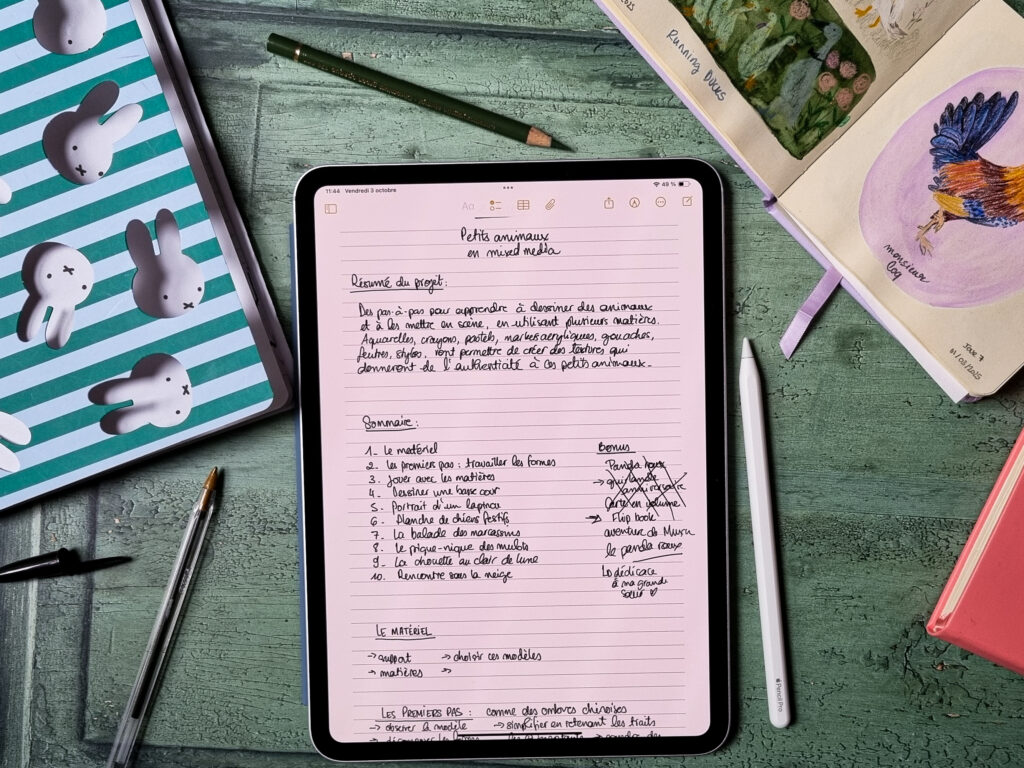 2025
Running Ducks
monsieur
coq
Jour 7
01/03/2025
11:44 Vendredi 3 octobre
49 %
Aa
Petits animaux
en mixed media
Résumé du projet :
Des pas-à-pas pour apprendre à dessiner des animaux
et à les mettre en scène, en utilisant plusieurs matières.
Aquarelles, crayons, pastels, markers acryliques, gouaches,
feutres, stylos, vont permettre de créer des textures qui
donneront de l'authenticité à ces petits animaux.
Sommaire :
1_ Le matériel
2_ Les premiers pas : travailler les formes
3_ Jouer avec les matières
4_ Dessiner une basse cour
5_ Portrait d'un lapinou
6_ Planche de chiens festifs
7_ La balade des marcassins
8_ Le pique-nique des mulots
9_ La chouette au clair de lune
10_ Rencontre sous la neige
Bonus
Panda roux
→ guirlande
anniversaire
Carte en volume
→ Flip book
aventure de
le panda roux
↳ dédicace
à ma grande
sœur ♡
LE MATÉRIEL
→ support → choisir ces modèles
→ matières →
LES PREMIERS PAS : comme des ombres chinoises
→ observer le modèle → simplifier en retenant les traits
Pencil Pro